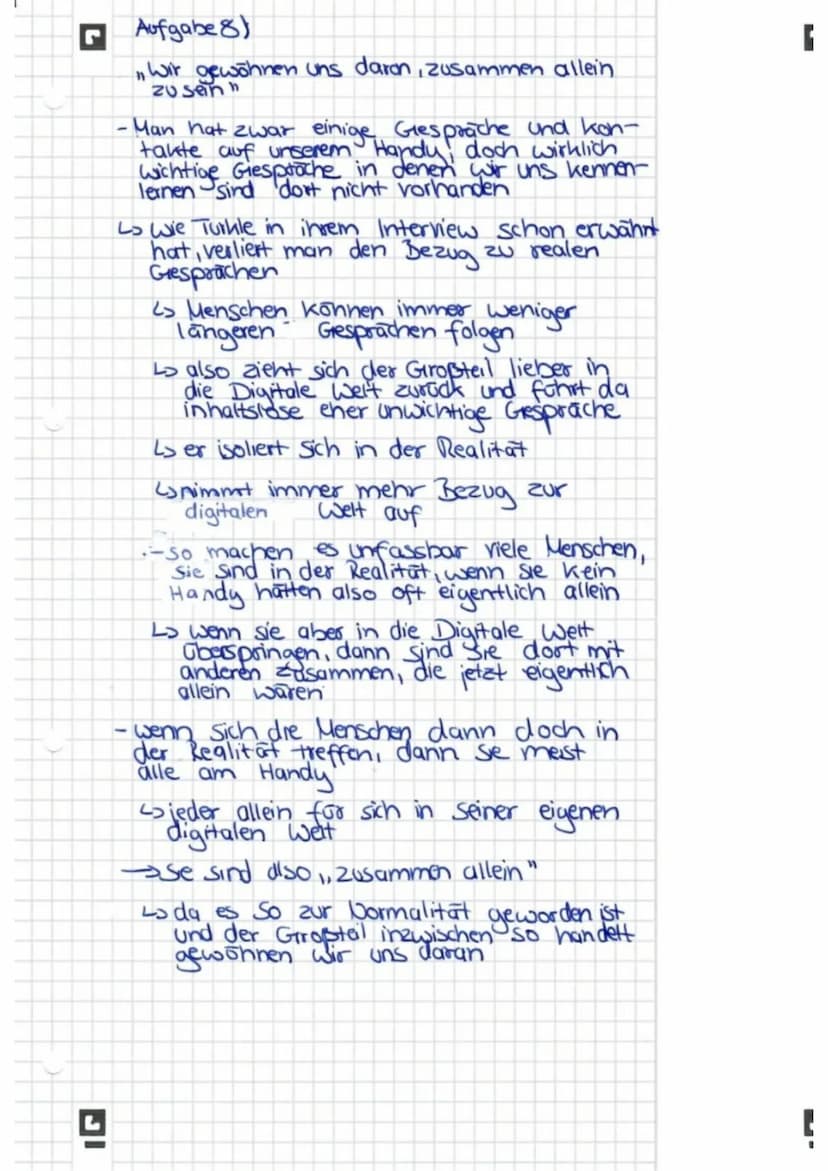 Aufgabe 8)
„Wir gewöhnen uns daran, zusammen allein
zu sein"
- Man hat zwar einige Gespräche und kon-
takte auf unserem Handy, doch wirklich
wichtige Gespräche in denen wir uns kennen-
lernen sind dort nicht vorhanden
↳ Wie Turkle in ihrem Interview schon erwähnt
hat, verliert man den Bezug zu realen
Gesprächen
↳ Menschen können immer weniger
längeren Gesprächen folgen
↳ also zieht sich der Großteil lieber in
die Digitale Welt zurück und führt da
inhaltslose eher unwichtige Gespräche
↳ er isoliert sich in der Realität
↳ nimmt immer mehr Bezug zur
digitalen Welt auf
- so machen es unfassbar viele Menschen,
Sie sind in der Realität, wenn sie kein
Handy hätten also oft eigentlich allein
↳ wenn sie aber in die Digitale Welt
überspringen, dann sind Sie dort mit
anderen Zusammen, die jetzt eigentlich
allein wären
- wenn sich die Menschen dann doch in
der Realität treffen, dann se meist
alle am Handy
↳ jeder allein für sich in seiner eigenen
digitalen Welt
→ Se sind also „zusammen allein"
↳ da es so zur Normalität geworden ist
und der Großteil inzwischen so handelt
gewöhnen wir uns daran